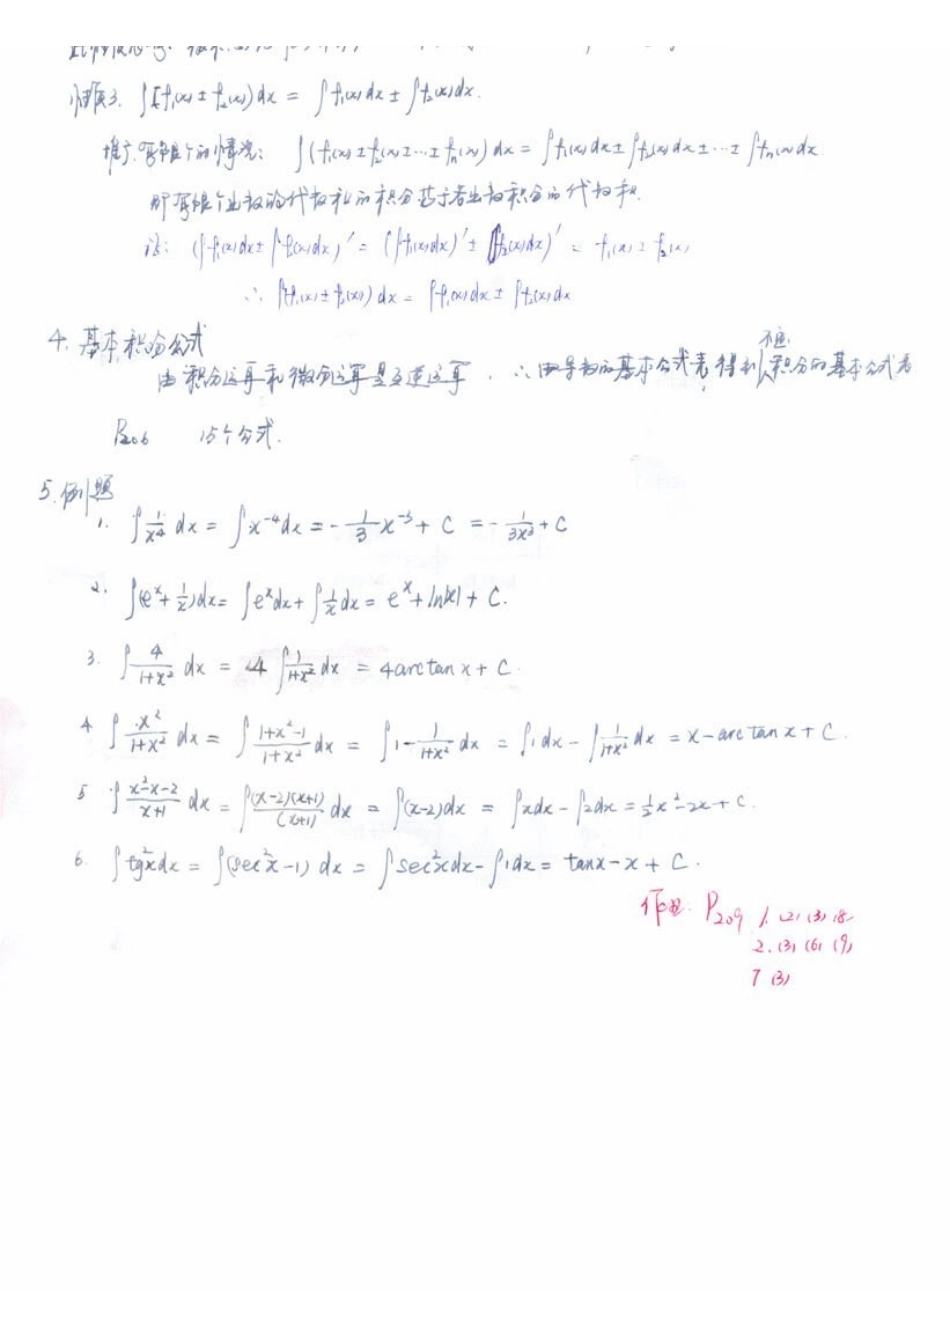 性质3. ∫[f₁(x)±f₂(x)]dx = ∫f₁(x)dx ± ∫f₂(x)dx.
推广至有限个的情况: ∫(f₁(x)±f₂(x)±…±fₙ(x))dx = ∫f₁(x)dx ± ∫f₂(x)dx ± … ± ∫fₙ(x)dx
即有限个函数的代数和的积分等于各函数积分的代数和.
证: (∫f₁(x)dx ± ∫f₂(x)dx)′ = (∫f₁(x)dx)′ ± (∫f₂(x)dx)′ = f₁(x) ± f₂(x)
∴ ∫(f₁(x)±f₂(x))dx = ∫f₁(x)dx ± ∫f₂(x)dx
4. 基本积分公式
由积分运算和微分运算是互逆运算, ∴由导数的基本公式表得到不定积分的基本公式表
P206 15个公式.
5. 例题
1. ∫ 1/x⁴ dx = ∫x⁻⁴dx = -1/3 x⁻³ + C = -1/(3x³) + C
2. ∫(eˣ + 1/x)dx = ∫eˣdx + ∫1/x dx = eˣ + ln|x| + C.
3. ∫ 4/(1+x²) dx = 4∫ 1/(1+x²) dx = 4arc tan x + C.
4 ∫ x²/(1+x²) dx = ∫ (1+x²-1)/(1+x²) dx = ∫1 - 1/(1+x²) dx = ∫1dx - ∫ 1/(1+x²) dx = x - arc tan x + C.
5 ∫ (x²-x-2)/(x+1) dx = ∫ (x-2)(x+1)/(x+1) dx = ∫(x-2)dx = ∫xdx - ∫2dx = ½x² - 2x + C.
6. ∫tg²xdx = ∫(sec²x-1)dx = ∫sec²xdx - ∫1dx = tanx - x + C.
作业: P209 1. (2) (3) (8)
2. (3) (6) (9)
7 (3)